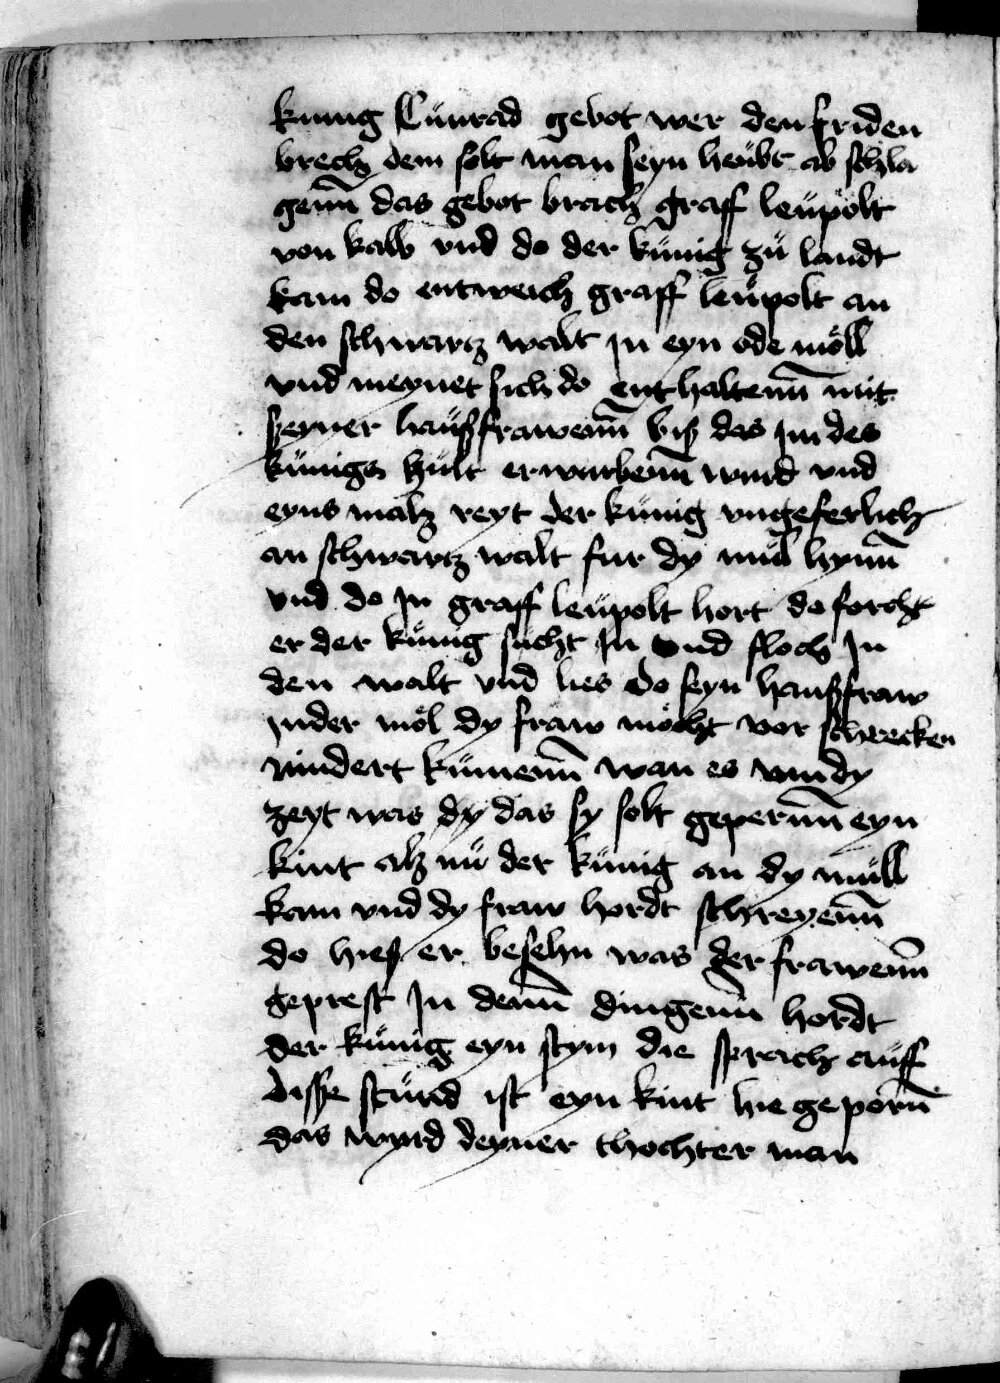 kunig Cunrad gebot wer den friden
brech dem solt man seyn heübt ab schla
genn das gebot brach graff leüpolt
von kalb vnd do der künig zü landt
kam do entweich graff leüpolt an
den schwarcz walt jn eyn ode möll
vnd meynet sich do enthaltenn mit
seyner haüßfrawenn biß das jm des
künigs hült erwurbenn wurd vnd
eyns malz reyt der künig vngeferlich
an schwarcz walt fur dy mül hynn
vnd do jn graff leüpolt hort do forcht
er der künig sücht jn vnd floch jn
den walt vnd lies do seyn haußfraw
jnder möl dy fraw möcht vor schrecken
nindert kümenn wan es vmdy
zeyt was dy das sy solt geperenn eyn
kint alz nü der künig an dy müll
kam vnd dy fraw hordt schreyenn
do hies er besehn was der frawenn
geprest jn denn dingenn hordt
der künig eyn stym die sprach aüff
disse stünd ist eyn kint hie geporn
das wyrd deyner thochter man